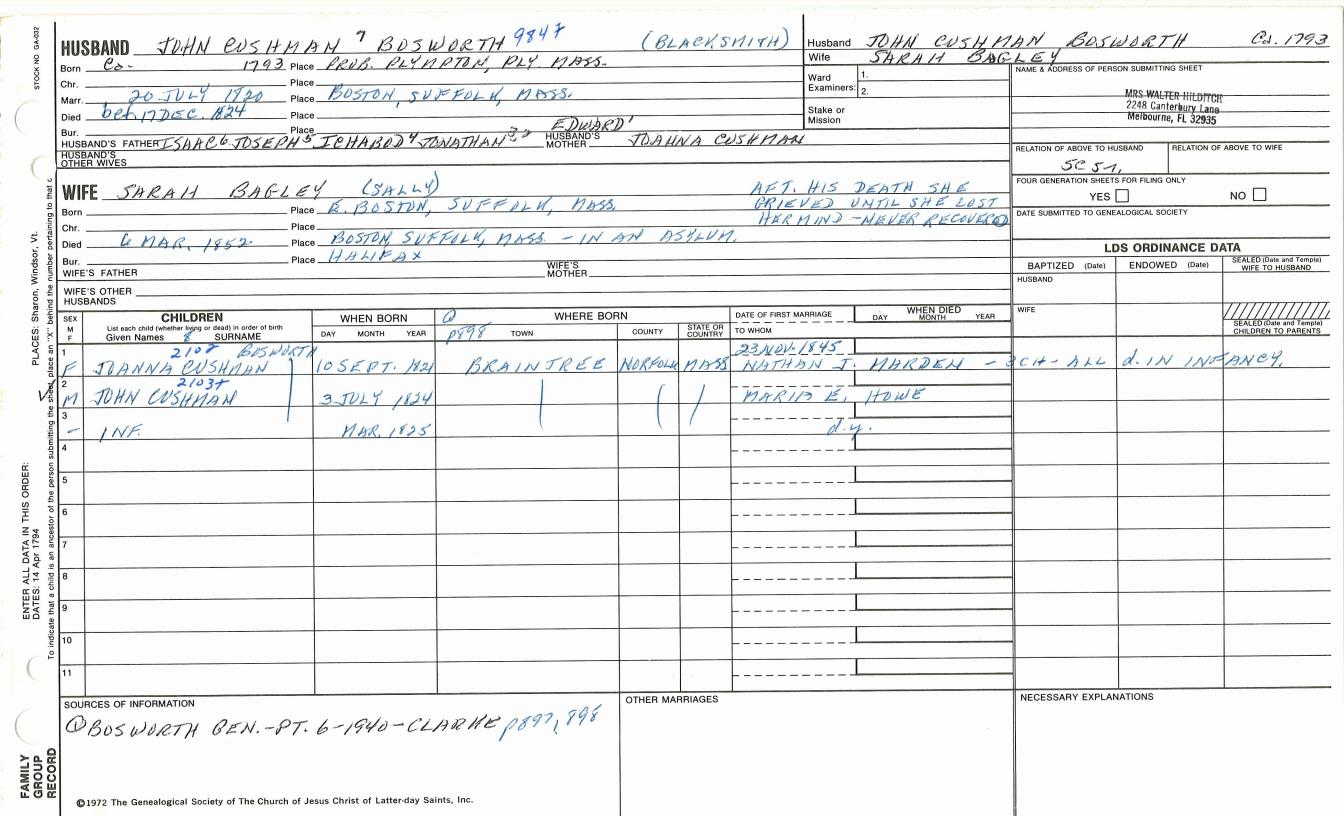 STOCK NO. GA-032
HUSBAND JOHN CUSHMAN 7 BOSWORTH 9847 (BLACKSMITH)
Born Ca- 1793 Place PROB. PLYMPTON, PLY. MASS.
Chr. Place
Marr. 20 JULY 1820 Place BOSTON, SUFFOLK, MASS.
Died bet. 17 DEC. 1824 Place
Bur. Place
HUSBAND'S FATHER ISAAC 6 JOSEPH 5 ICHABOD 4 JONATHAN 3,2 EDWARD 1 HUSBAND'S MOTHER JOANNA CUSHMAN
HUSBAND'S OTHER WIVES
Husband JOHN CUSHMAN BOSWORTH Ca. 1793
Wife SARAH BAGLEY
Ward Examiners: 1.
2.
Stake or Mission
NAME & ADDRESS OF PERSON SUBMITTING SHEET
MRS WALTER HILDITCH
2248 Canterbury Lane
Melbourne, FL 32935
RELATION OF ABOVE TO HUSBAND RELATION OF ABOVE TO WIFE
FOUR GENERATION SHEETS FOR FILING ONLY
YES NO
DATE SUBMITTED TO GENEALOGICAL SOCIETY
WIFE SARAH BAGLEY (SALLY)
AFT. HIS DEATH SHE
GRIEVED UNTIL SHE LOST
HER MIND - NEVER RECOVERED
Born Place E. BOSTON, SUFFOLK, MASS.
Chr. Place
Died 6 MAR. 1852 Place BOSTON, SUFFOLK, MASS. - IN AN ASYLUM.
Bur. Place HALIFAX
WIFE'S FATHER WIFE'S MOTHER
WIFE'S OTHER HUSBANDS
LDS ORDINANCE DATA
BAPTIZED (Date) ENDOWED (Date) SEALED (Date and Temple) WIFE TO HUSBAND
HUSBAND
WIFE
SEALED (Date and Temple) CHILDREN TO PARENTS
SEX M F CHILDREN WHEN BORN WHERE BORN DATE OF FIRST MARRIAGE WHEN DIED
List each child (whether living or dead) in order of birth
Given Names 8 SURNAME DAY MONTH YEAR p898 TOWN COUNTY STATE OR COUNTRY TO WHOM DAY MONTH YEAR
1 BOSWORTH 23 NOV. 1845
F JOANNA CUSHMAN 10 SEPT. 1821 BRAINTREE NORFOLK MASS NATHAN J. MARDEN - 3 CH - ALL d. IN INFANCY.
2 2103+
M JOHN CUSHMAN 3 JULY 1824 MARIA E. HOWE
3
- INF. MAR. 1825 d.y.
4
5
6
7
8
9
10
11
SOURCES OF INFORMATION OTHER MARRIAGES NECESSARY EXPLANATIONS
① BOSWORTH GEN. - PT. 6 - 1940 - CLARKE p897, 898
©1972 The Genealogical Society of The Church of Jesus Christ of Latter-day Saints, Inc.
FAMILY GROUP RECORD
ENTER ALL DATA IN THIS ORDER:
DATES: 14 Apr 1794
PLACES: Sharon, Windsor, Vt.
To indicate that a child is an ancestor of the person submitting the sheet, place an "X" behind the number pertaining to that c